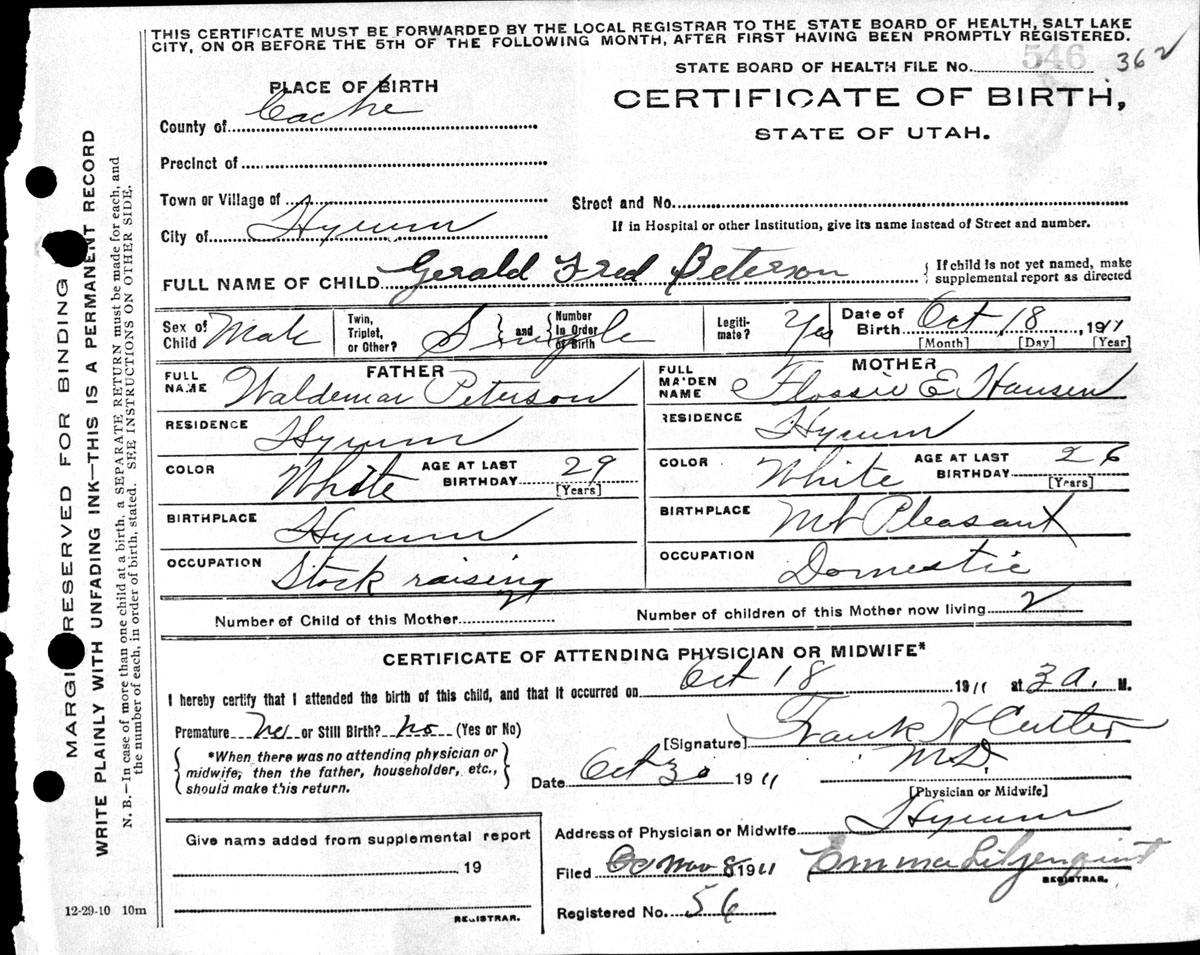 THIS CERTIFICATE MUST BE FORWARDED BY THE LOCAL REGISTRAR TO THE STATE BOARD OF HEALTH, SALT LAKE
CITY, ON OR BEFORE THE 5TH OF THE FOLLOWING MONTH, AFTER FIRST HAVING BEEN PROMPTLY REGISTERED.
STATE BOARD OF HEALTH FILE No. 546 362
PLACE OF BIRTH
CERTIFICATE OF BIRTH,
County of Cache
STATE OF UTAH.
Precinct of
Town or Village of
Street and No.
City of Hyrum
If in Hospital or other Institution, give its name instead of Street and number.
FULL NAME OF CHILD Gerald Fred Peterson { If child is not yet named, make
supplemental report as directed
Sex of Child Male Twin, Triplet, or Other? Single and { Number in Order of Birth Legiti-mate? Yes Date of Birth Oct 18, 1911
[Month] [Day] [Year]
FATHER MOTHER
FULL NAME Waldemar Peterson FULL MAIDEN NAME Flossie E Hansen
RESIDENCE Hyrum RESIDENCE Hyrum
COLOR White AGE AT LAST BIRTHDAY 29 [Years] COLOR White AGE AT LAST BIRTHDAY 26 [Years]
BIRTHPLACE Hyrum BIRTHPLACE Mt Pleasant
OCCUPATION Stock raising OCCUPATION Domestic
Number of Child of this Mother Number of children of this Mother now living 2
CERTIFICATE OF ATTENDING PHYSICIAN OR MIDWIFE*
I hereby certify that I attended the birth of this child, and that it occurred on Oct 18 1911 at 3 a. M.
Premature No or Still Birth? No (Yes or No)
[Signature] Frank H Cutler
*When there was no attending physician or
midwife, then the father, householder, etc.,
should make this return.
Date Oct 30 1911 M.D.
[Physician or Midwife]
Address of Physician or Midwife Hyrum
Give name added from supplemental report
19
REGISTRAR.
Filed Nov 8 1911 Emma
REGISTRAR.
Registered No. 56
12-29-10 10m
MARGIN RESERVED FOR BINDING
WRITE PLAINLY WITH UNFADING INK—THIS IS A PERMANENT RECORD
N. B.—In case of more than one child at a birth, a SEPARATE RETURN must be made for each, and
the number of each, in order of birth, stated. SEE INSTRUCTIONS ON OTHER SIDE.